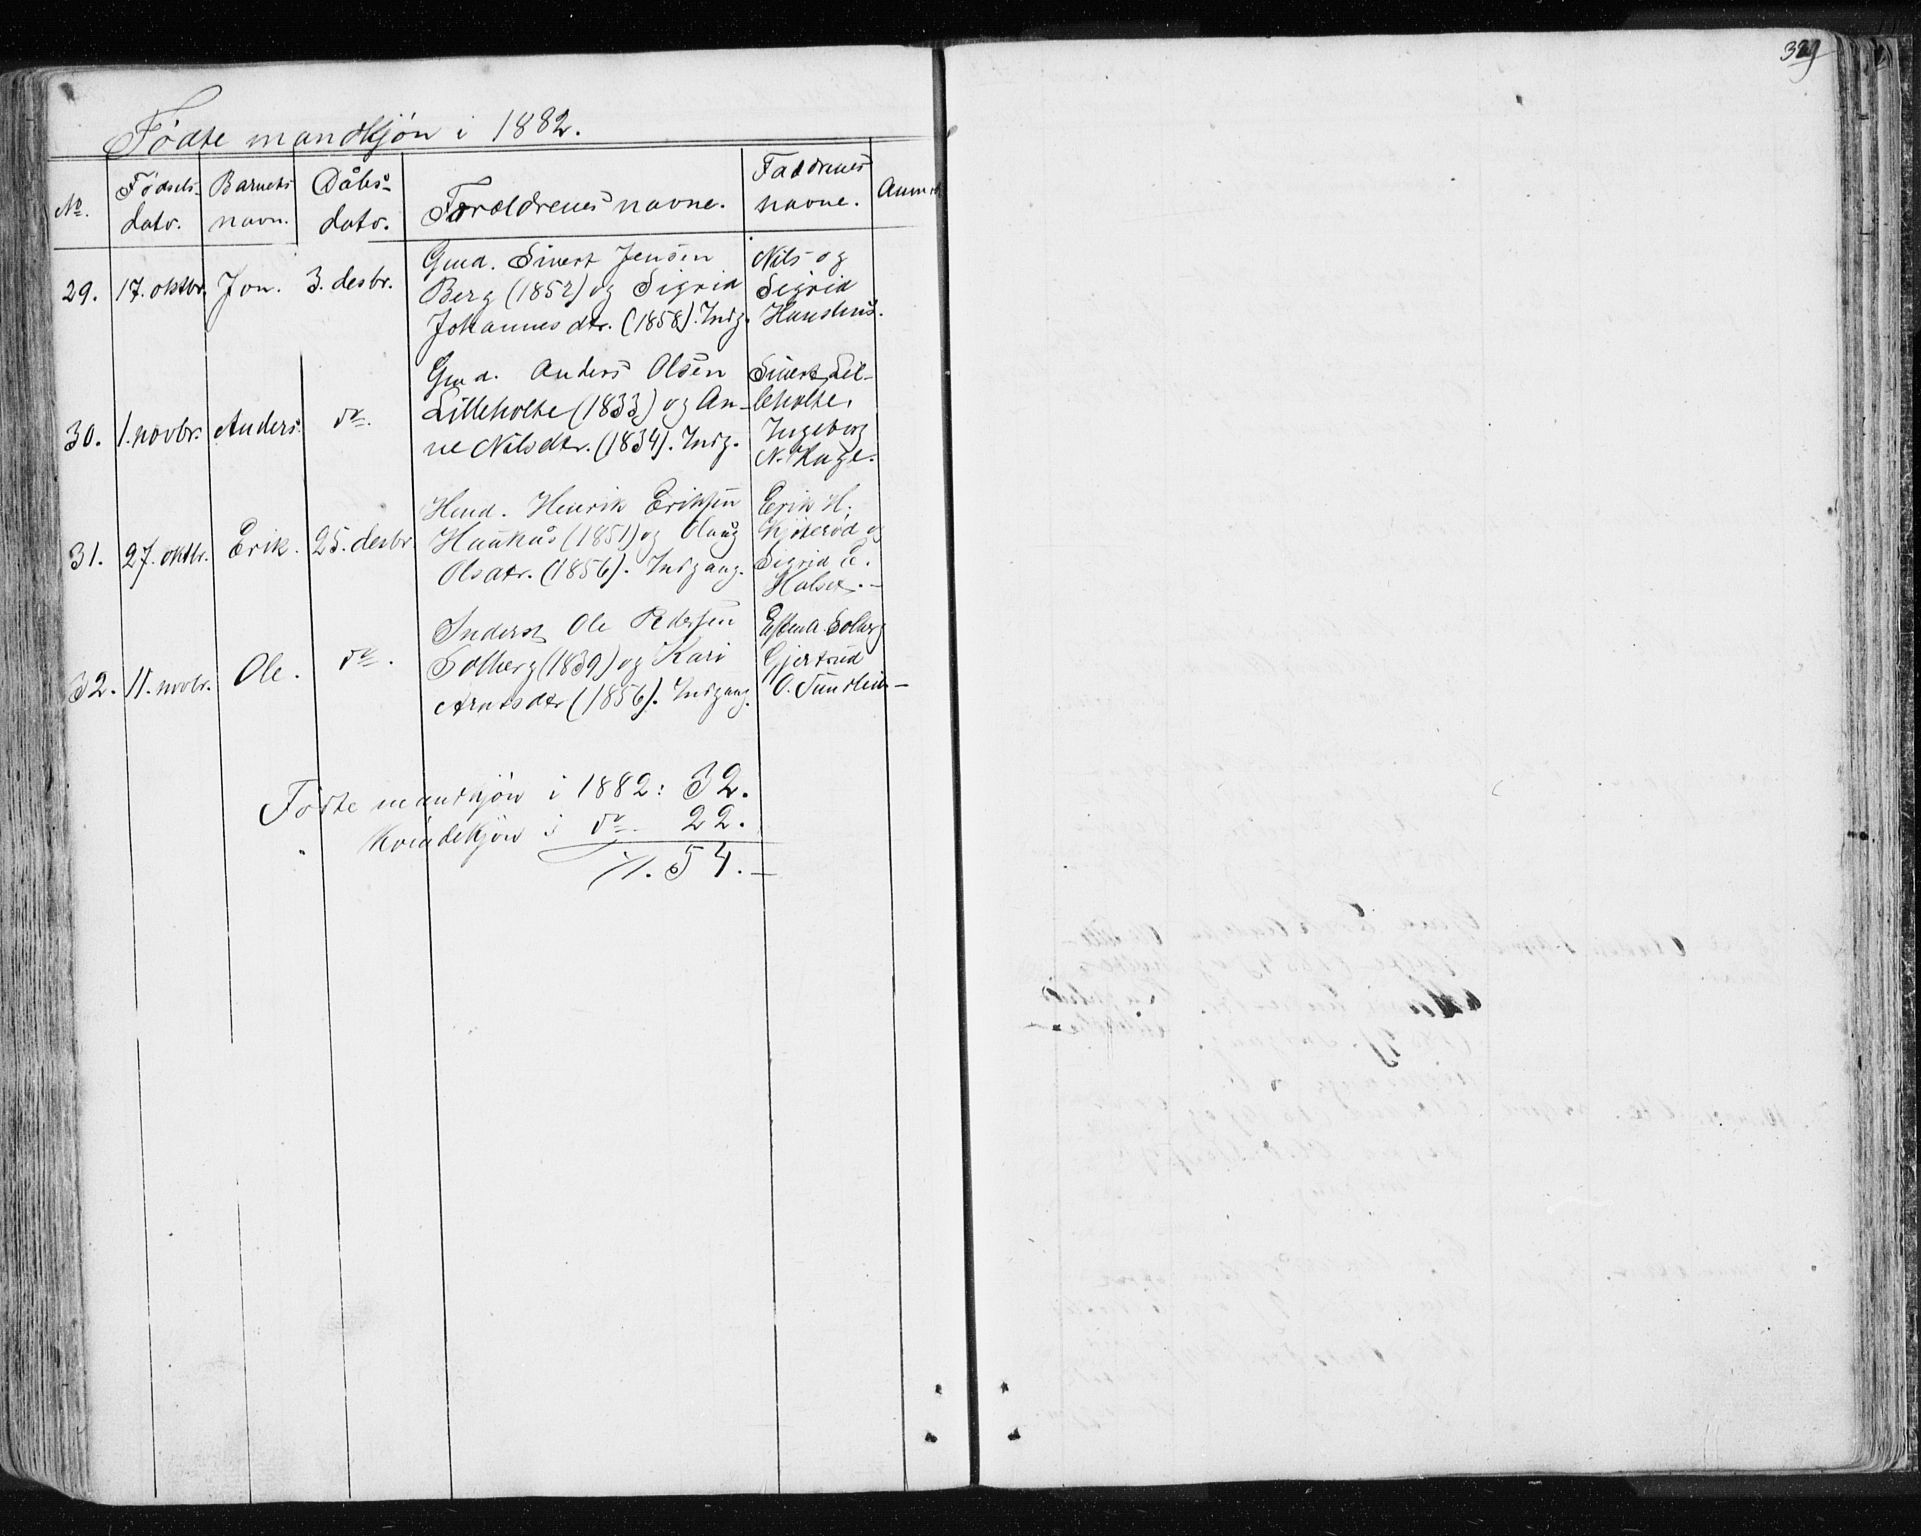 329
Fødte mandkjøn i 1882.
No. Fødsels- dato. Barnets navn. Dåbs- dato. Forældrenes navne. Faddrenes navne. Anm
29. 17. oktbr. Jon. 3. desbr. Gmd. Sivert Jensen
Berg (1852) og Sigrid
Johannesdtr. (1858). Indg.
Nils og
Sigrid
30. 1. novbr. Anders. do. Gmd. Anders Olsen
Lilleholte (1833) og An-
ne Nilsdtr. (1834). Indg.
Sivert Lil-
leholte,
Ingeborg
N. Hage.
31. 27. oktbr. Erik. 25. desbr. Henrik Eriksen
(1851) og Olaug
Olsdtr. (1856). Indgang.
Erik H.
og
Sigrid E.
Halset.
32. 11. novbr. Ole. do. Inderst Ole Pedersen
Solberg (1839) og Kari
Arntsdtr (1856). Indgang.
Esten A. Solberg
Gjertrud
O.
Fødte mandkjøn i 1882: 32.
" kvindekjøn i do. 22.
/. 54.